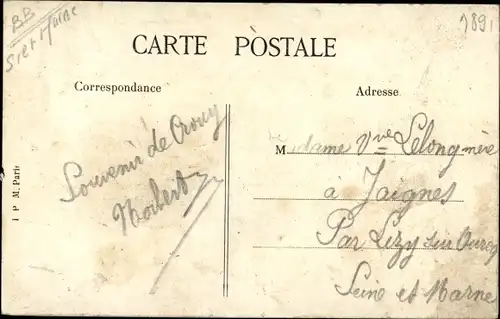 BB
S. et Marne
7891
CARTE POSTALE
Correspondance
Adresse
Souvenir de Crouy
Norbert
Madame Vve Lelong mère
à Jaignes
Par Lizy sur Ourcq
Seine et Marne
I P M, Paris